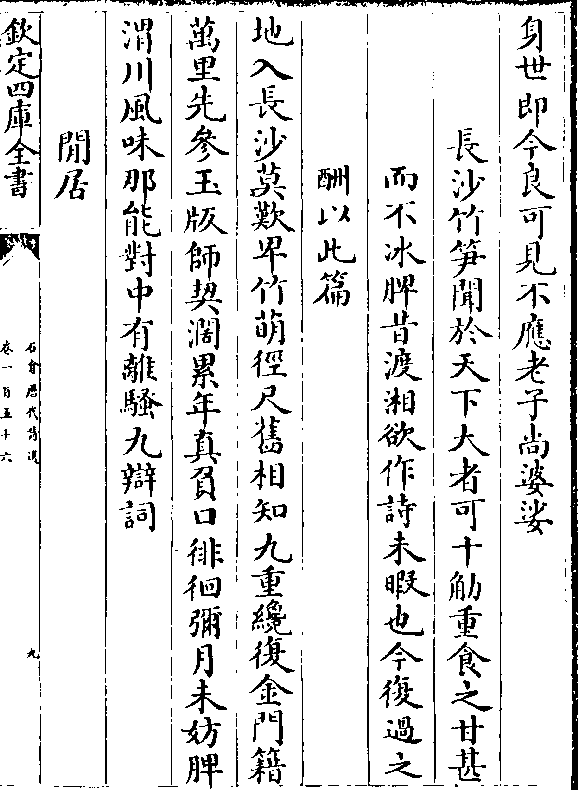 身世即今良可見不應老子尚婆娑
長沙竹笋聞於天下大者可十觔重食之甘甚
而不冰脾昔渡湘欲作詩未暇也今復過之
酬以此篇
地入長沙莫歎卑竹萌徑尺舊相知九重纔復金門籍
萬里先參玉版師契濶累年真負口徘徊彌月未妨脾
渭川風味那能對中有離騷九辯詞
閒居
欽定四庫全書
石倉歷代詩選
卷一百五十六
九